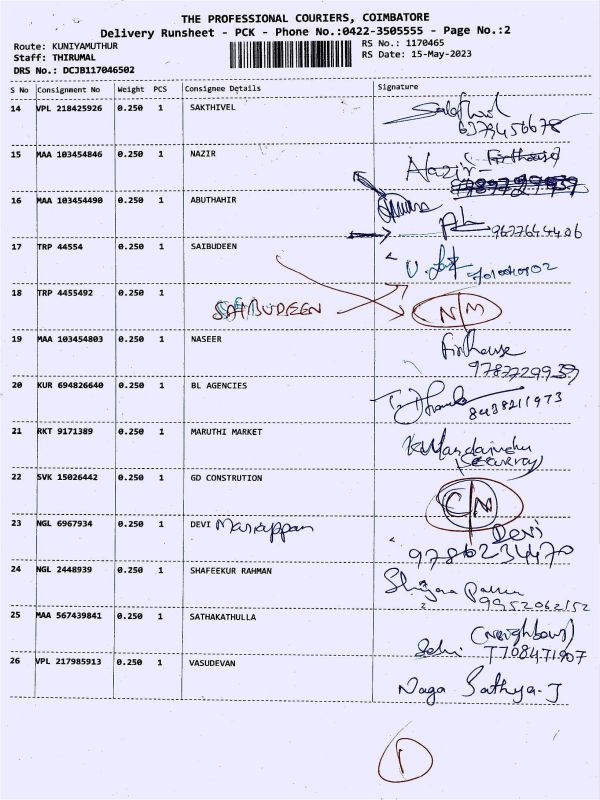 THE PROFESSIONAL COURIERS, COIMBATORE
Delivery Runsheet - PCK - Phone No.:0422-3505555 - Page No.:2
Route: KUNIYAMUTHUR RS No.: 1170465
Staff: THIRUMAL RS Date: 15-May-2023
DRS No.: DCJB117046502
S No Consignment No Weight PCS Consignee Details Signature
14 VPL 218425926 0.250 1 SAKTHIVEL
6379456678
15 MAA 103454846 0.250 1 NAZIR Nazir- (Firthouse)
16 MAA 103454490 0.250 1 ABUTHAHIR
9677644406
17 TRP 44554 0.250 1 SAIBUDEEN
18 TRP 4455492 0.250 1 SAIBUDEEN N/M
19 MAA 103454803 0.250 1 NASEER Firthouse
9787729939
20 KUR 694826640 0.250 1 BL AGENCIES
8438211973
21 RKT 9171389 0.250 1 MARUTHI MARKET
(Security)
22 SVK 15026442 0.250 1 GD CONSTRUTION C/N
23 NGL 6967934 0.250 1 DEVI Mariappan Devi
9786234470
24 NGL 2448939 0.250 1 SHAFEEKUR RAHMAN
9952062152
25 MAA 567439841 0.250 1 SATHAKATHULLA (Neighbour)
7708471907
26 VPL 217985913 0.250 1 VASUDEVAN Naga Sathya.J
1